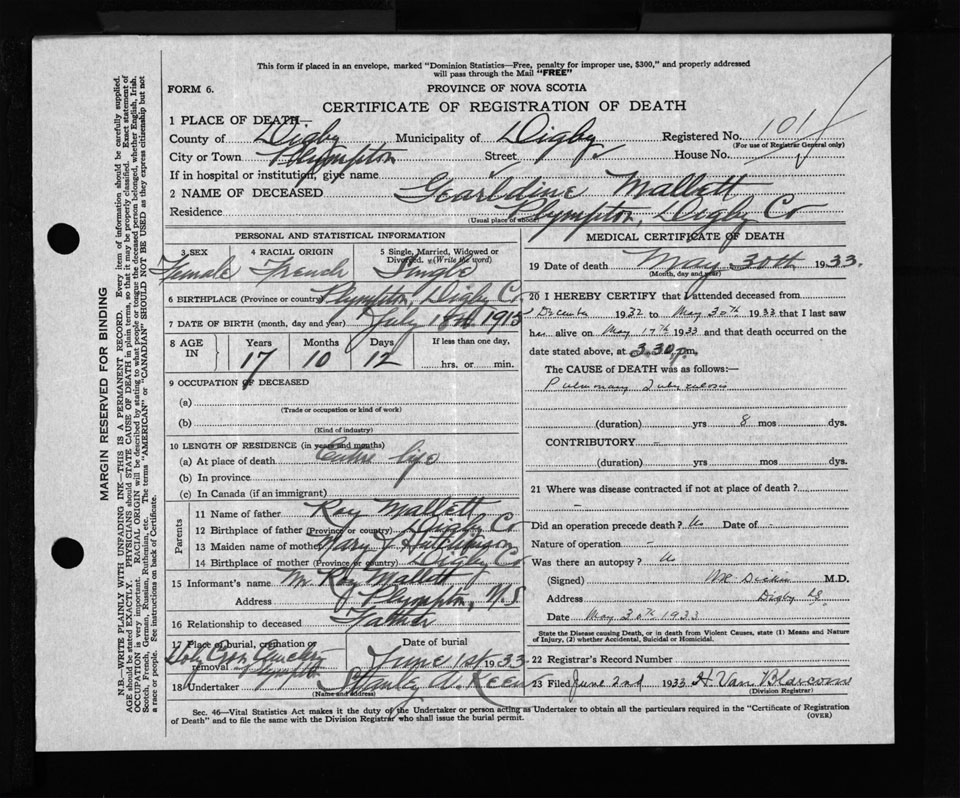 This form if placed in an envelope, marked "Dominion Statistics—Free, penalty for improper use, $300," and properly addressed
will pass through the Mail "FREE"
FORM 6.
PROVINCE OF NOVA SCOTIA
CERTIFICATE OF REGISTRATION OF DEATH
1 PLACE OF DEATH—
County of Digby Municipality of Digby Registered No. 101
(For use of Registrar General only)
City or Town Plympton Street House No.
If in hospital or institution, give name
2 NAME OF DECEASED Gearldine Mallett
Residence Plympton, Digby Co
(Usual place of abode)
PERSONAL AND STATISTICAL INFORMATION
3 SEX 4 RACIAL ORIGIN 5 Single, Married, Widowed or Divorced (Write the word)
Female French Single
6 BIRTHPLACE (Province or country) Plympton, Digby Co.
7 DATE OF BIRTH (month, day and year) July 18th 1915
8 AGE IN Years Months Days If less than one day,
17 10 12 hrs. or min.
9 OCCUPATION OF DECEASED
(a)
(Trade or occupation or kind of work)
(b)
(Kind of industry)
10 LENGTH OF RESIDENCE (in years and months)
(a) At place of death Entire life
(b) In province
(c) In Canada (if an immigrant)
Parents
11 Name of father Roy Mallett
12 Birthplace of father (Province or country) Digby Co
13 Maiden name of mother Mary J Hutchinson
14 Birthplace of mother (Province or country) Digby Co
15 Informant's name Mr. Roy Mallett
Address Plympton, N.S
16 Relationship to deceased Father
17 Place of burial, cremation or removal Date of burial
Plympton June 1st 1933
18 Undertaker Stanley A. Keen
(Name and address)
MEDICAL CERTIFICATE OF DEATH
19 Date of death May 30th 1933.
(Month, day and year)
20 I HEREBY CERTIFY that I attended deceased from
December 1932 to May 30th 1933 that I last saw
her alive on May 17th 1933 and that death occurred on
date stated above, at 3.30 p.m.
The CAUSE of DEATH was as follows:—
Pulmonary Tuberculosis
(duration) yrs 8 mos dys.
CONTRIBUTORY -
(duration) yrs mos dys.
21 Where was disease contracted if not at place of death?
-
Did an operation precede death? No Date of -
Nature of operation -
Was there an autopsy? No
(Signed) M.D.
Address Digby NS.
Date May 30th 1933
State the Disease causing Death, or in death from Violent Causes, state (1) Means and Nature
of Injury, (2) whether Accidental, Suicidal or Homicidal.
22 Registrar's Record Number
23 Filed June 2nd 1933 H. Van Blarcom
(Division Registrar)
Sec. 46—Vital Statistics Act makes it the duty of the Undertaker or person acting as Undertaker to obtain all the particulars required in the "Certificate of Registration
of Death" and to file the same with the Division Registrar who shall issue the burial permit.
(OVER)
MARGIN RESERVED FOR BINDING
N.B.—WRITE PLAINLY WITH UNFADING INK—THIS IS A PERMANENT RECORD. Every item of information should be carefully supplied.
AGE should be stated EXACTLY. PHYSICIANS should STATE CAUSE OF DEATH in plain terms, so that it may be properly classified. Exact statement of
OCCUPATION is very important. RACIAL ORIGIN will be described by stating to what people or tongue the deceased person belonged, whether English, Irish,
Scotch, French, German, Russian, Ruthenian, etc. The terms "AMERICAN" or "CANADIAN" SHOULD NOT BE USED as they express citizenship but not
a race or people. See instructions on back of Certificate.